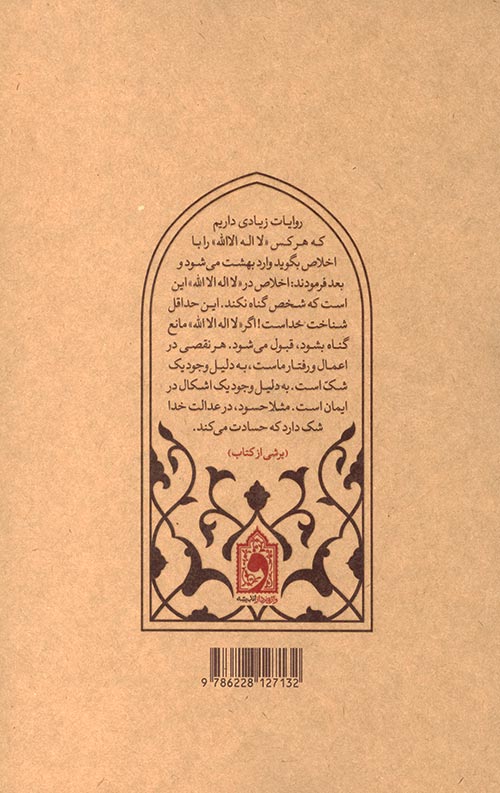 روایات زیادی داریم
که هر کس «لا اله الا الله» را با
اخلاص بگوید وارد بهشت می‌شود و
بعد فرمودند: اخلاص در «لا اله الا الله» این
است که شخص گناه نکند. این حداقل
شناخت خداست! اگر «لا اله الا الله» مانع
گناه بشود، قبول می‌شود. هر نقصی در
اعمال و رفتار ماست، به دلیل وجود یک
شکّ است. به دلیل وجود یک اشکال در
ایمان است. مثلا حسود، در عدالت خدا
شک دارد که حسادت می‌کند.
(برشی از کتاب)
9 786228 127132